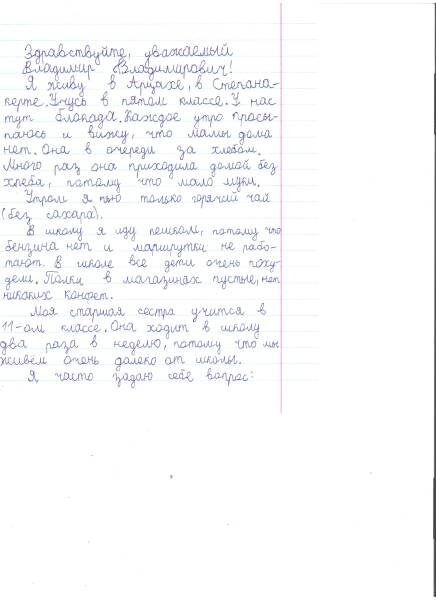 Здравствуйте, уважаемый
Владимир Владимирович!
Я живу в Арцахе, в Степана-
керте. Учусь в пятом классе. У нас
тут блокада. Каждое утро просы-
паюсь и вижу, что мамы дома
нет. Она в очереди за хлебом.
Много раз она приходила домой без
хлеба, потому что мало муки.
Утром я пью только горячий чай
(без сахара).
В школу я иду пешком, потому что
бензина нет и маршрутки не рабо-
тают. В школе все дети очень поху-
дели. Полки в магазинах пустые, нет
никаких конфет.
Моя старшая сестра учится в
11-ом классе. Она ходит в школу
два раза в неделю, потому что мы
живём очень далеко от школы.
Я часто задаю себе вопрос: